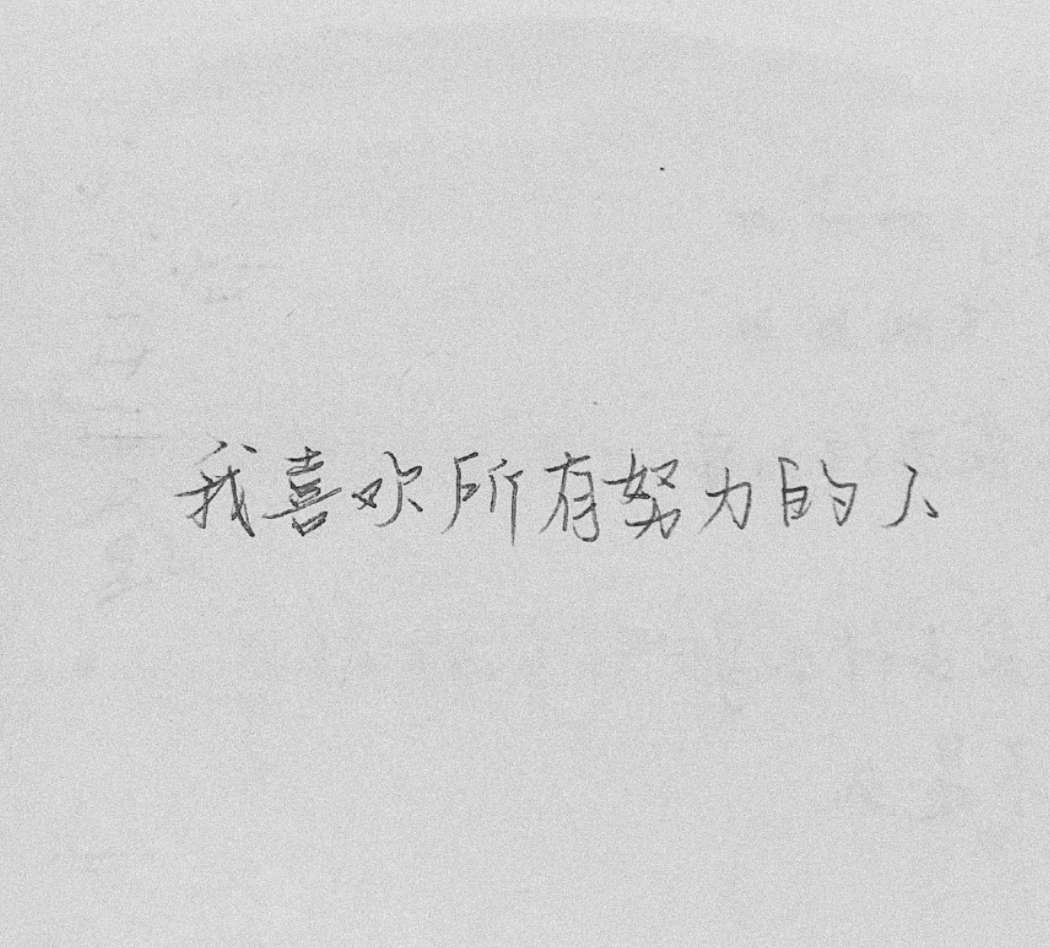 我喜欢所有努力的人